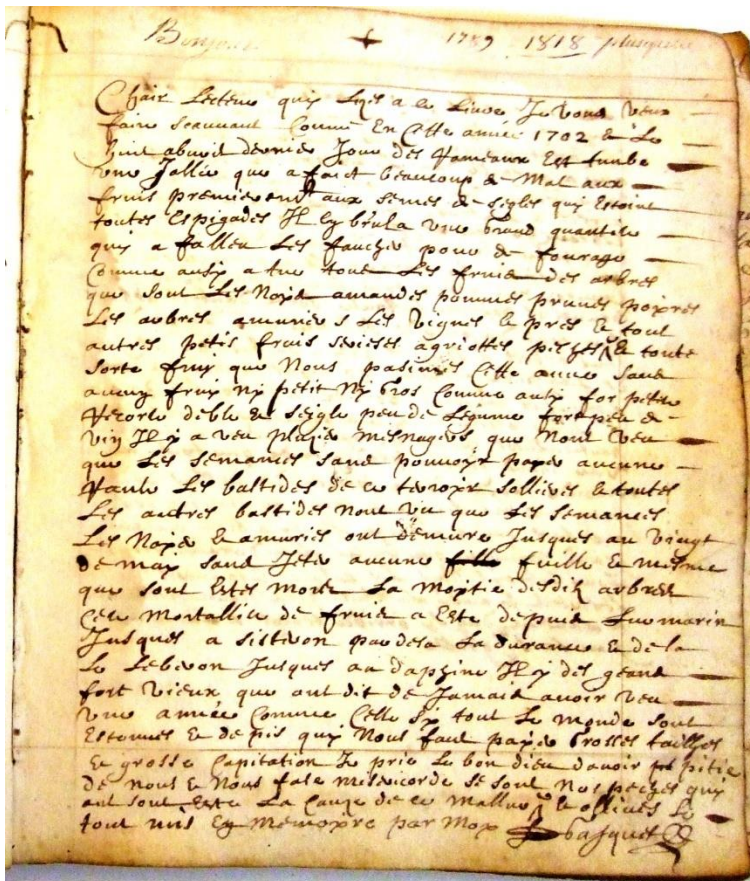 Bonjour + 1789 1818 plusqueue
Chair Lecteur quy Lizes a le Livre Je vous veux
faire scauvant Comme En Cette année 1702 & Le
huit abvril dernier Jour des Rameaux Est tumbe
une Jallée que a faict beaucoup de Mal aux
fruis premierement aux semes de segles quy Estoint
toutes Espigades Il Ey brula une brand quantite
quy a falleu Les faucher pour de fourrage
Comme ausy a tue tous Les fruis des arbres
que sont Les Noix amandes pommes prunes poires
Les arbres amuriers Les vignes Le pres & tout
autres petis fruis serieses agriottes peches & toute
sorte fruy que Nous pasimes Cette annee sans
aucuy fruy ny petit Ny Gros Comme ausy for petite
Recorte deble & seigle peu de Legume fort peu de
viy Il y a veu plusieurs mesnagers que Nont veu
que Les semances sans pouvoyr payer aucune
Rante Les bastides de ce terroir sollieres & toutes
Les autres bastides nont veu que Les semances
Les Noyers & amuriers ont demure Jusques au vingt
de may sans Jeter aucune fuille & mesme
que sont Estes mors La moytie desdis arbres
Cete Mortallite de fruis a Este depuis Lurmarin
Jusques a sisteron par desa La durance & de la
Le Leberon Jusques au daphine Il y des geans
fort vieux que ont dit de Jamais avoir veu
une année Comme Celle sy tout Le monde sont
Estonnes & de pis quy Nous faut payer Grosses tailles
& grosse Capitation Je prie Le bon dieu davoir pitie
de nous & Nous fase misericorde se sont Nos peches quy
ont Este La Cauze de ce malheur & ollives Le
tout mis Ey memoyre par Moy basquet